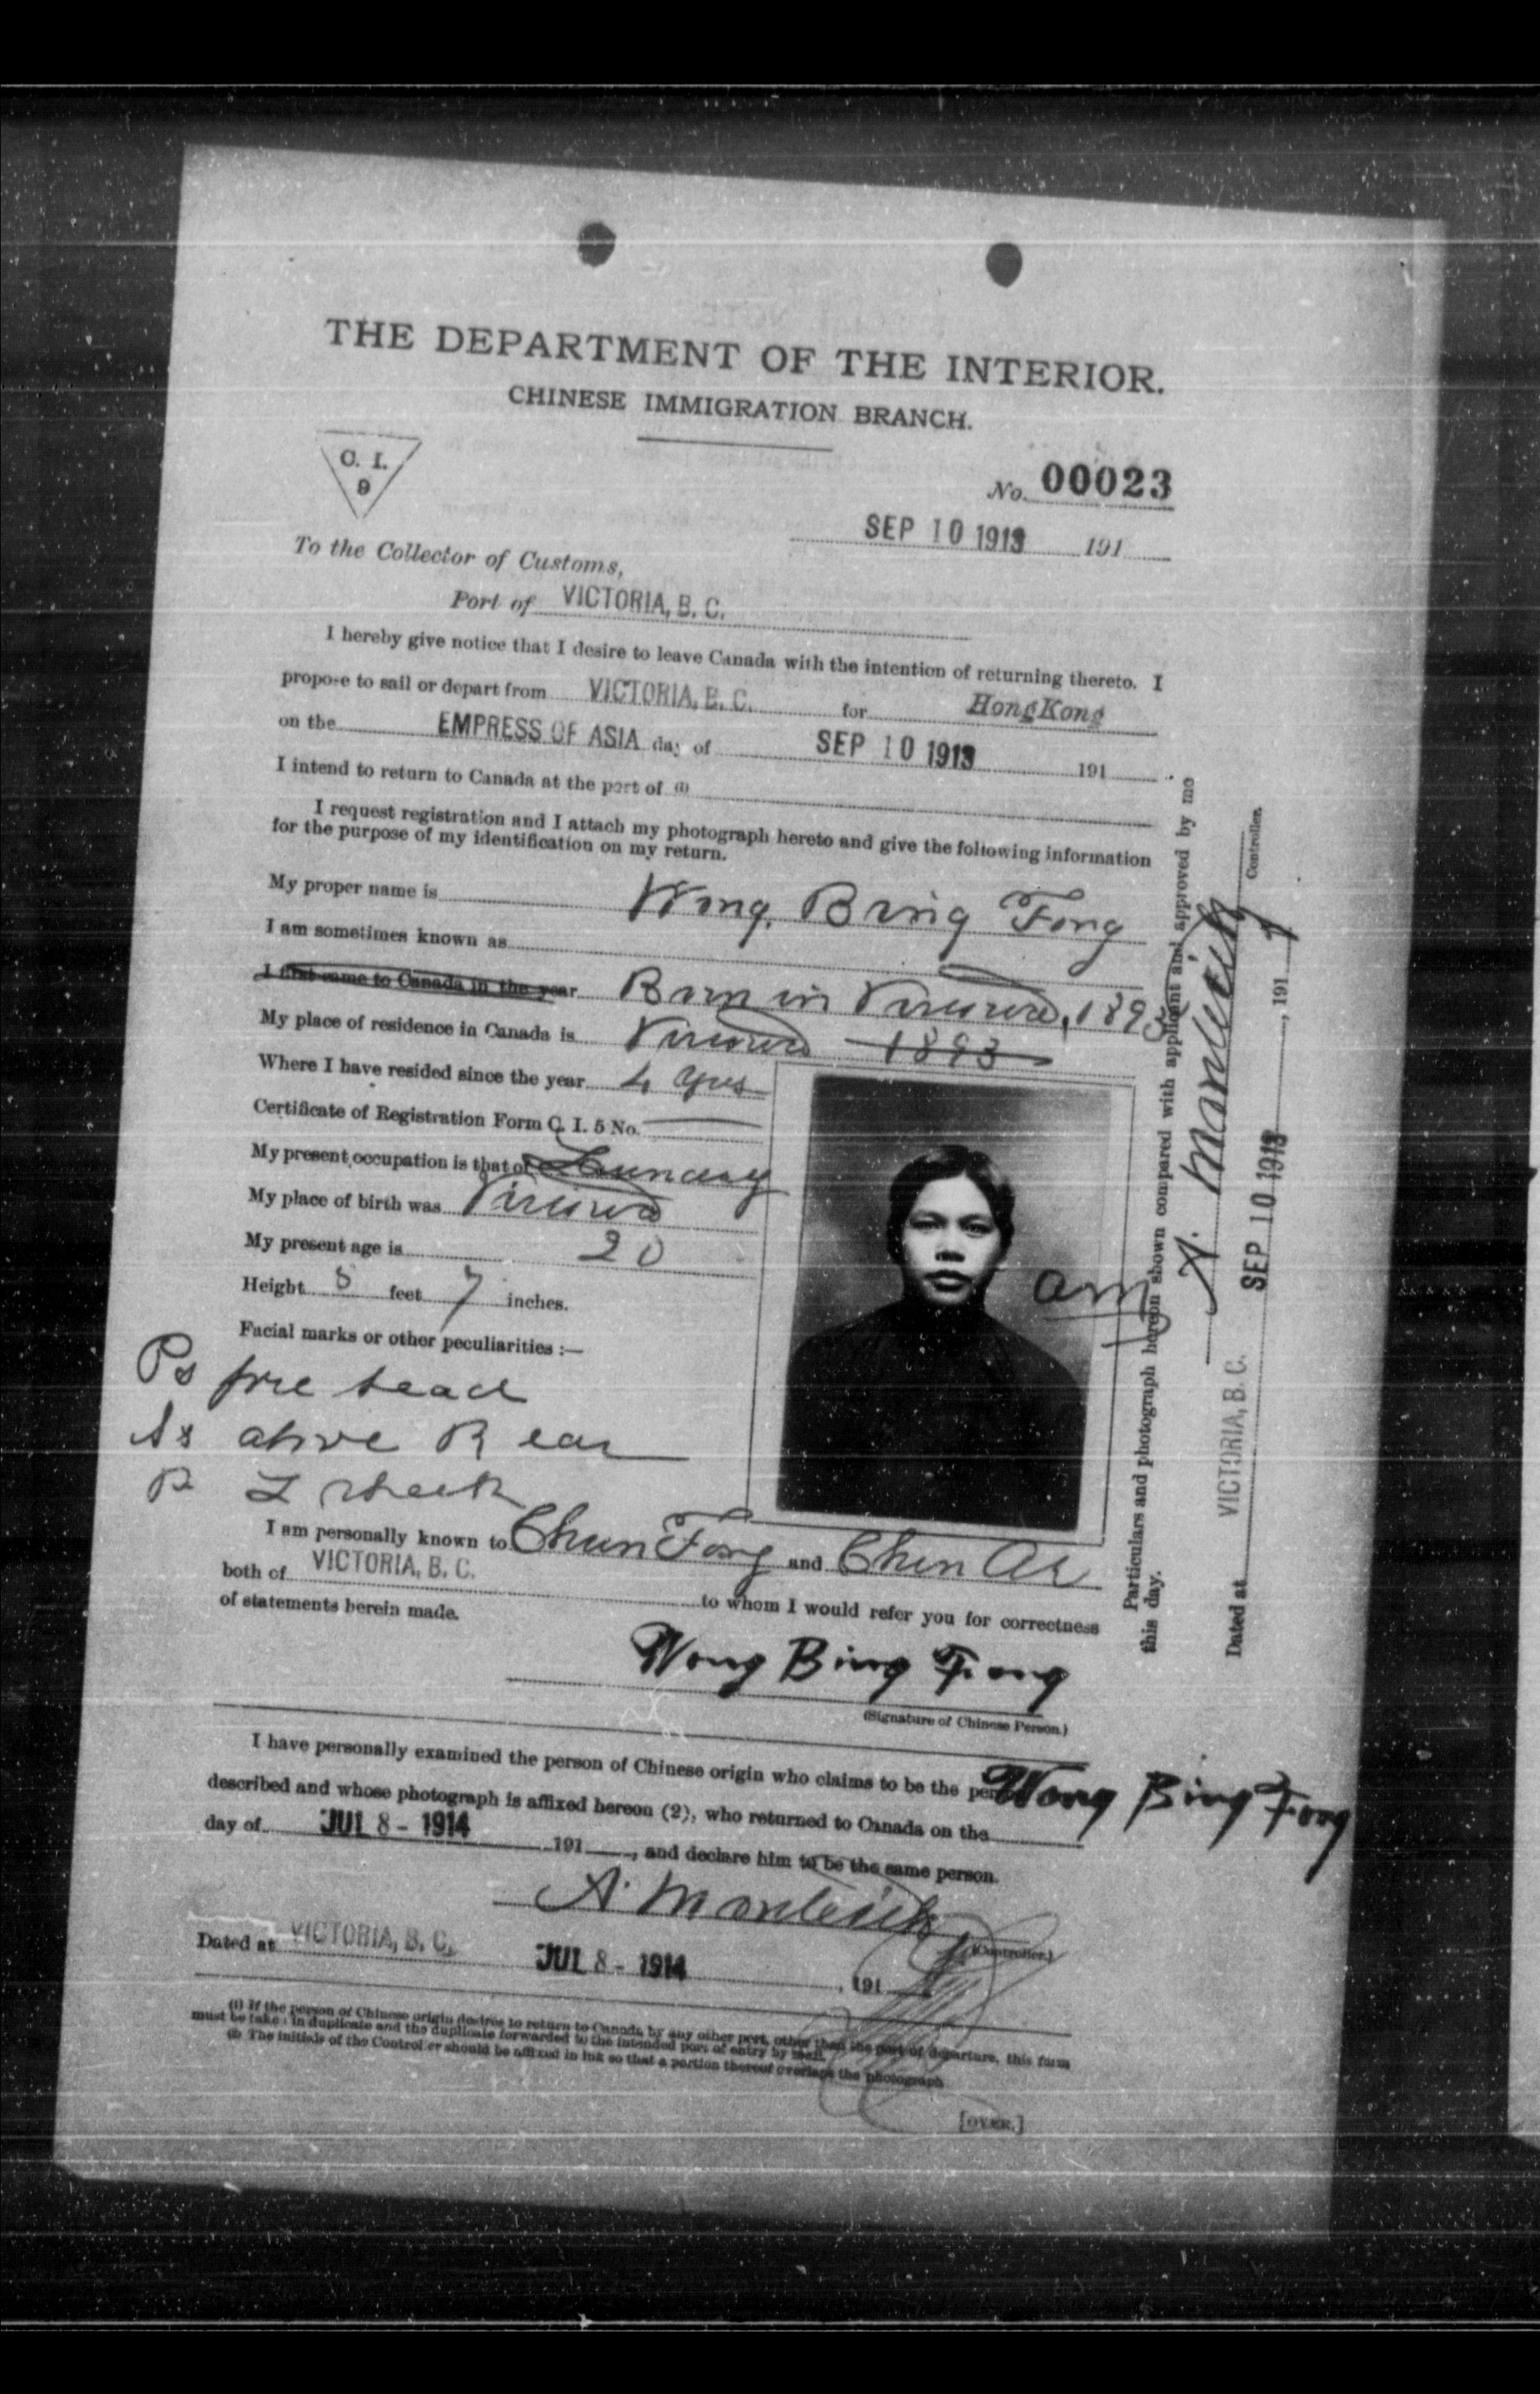 THE DEPARTMENT OF THE INTERIOR.
CHINESE IMMIGRATION BRANCH.
C. I.
9
No. 00023
SEP 10 1913 191
To the Collector of Customs,
Port of VICTORIA, B. C.
I hereby give notice that I desire to leave Canada with the intention of returning thereto. I
propose to sail or depart from VICTORIA, B. C. for HongKong
on the EMPRESS OF ASIA day of SEP 10 1913 191
I intend to return to Canada at the port of (1)
I request registration and I attach my photograph hereto and give the following information
for the purpose of my identification on my return.
My proper name is Wong Bing Fong
I am sometimes known as
I first came to Canada in the year Born in Victoria, 1893
My place of residence in Canada is Victoria 1893
Where I have resided since the year 4 yrs
Certificate of Registration Form C. I. 5 No.
My present occupation is that of Laundry
My place of birth was Victoria
My present age is 20
Height 5 feet 7 inches.
Facial marks or other peculiarities :—
Ps fore head
Ss above R ear
L cheek
am
I am personally known to Chun Fong and Chen
both of VICTORIA, B. C. to whom I would refer you for correctness
of statements herein made.
Wong Bing Fong
(Signature of Chinese Person.)
I have personally examined the person of Chinese origin who claims to be the per Wong Bing Fong
described and whose photograph is affixed hereon (2), who returned to Canada on the
day of JUL 8 - 1914 191 , and declare him to be the same person.
A. Monteith
(Controller.)
Dated at VICTORIA, B. C. JUL 8 - 1914 , 191
(1) If the person of Chinese origin desires to return to Canada by any other port, other than the port of departure, this form
must be taken in duplicate and the duplicate forwarded to the intended port of entry by mail.
(2) The initials of the Controller should be affixed in ink so that a portion thereof overlaps the photograph
[OVER.]
Particulars and photograph hereon shown compared with applicant and approved by me
this day.
A. Monteith
Controller.
Dated at VICTORIA, B. C. SEP 10 1913 , 191